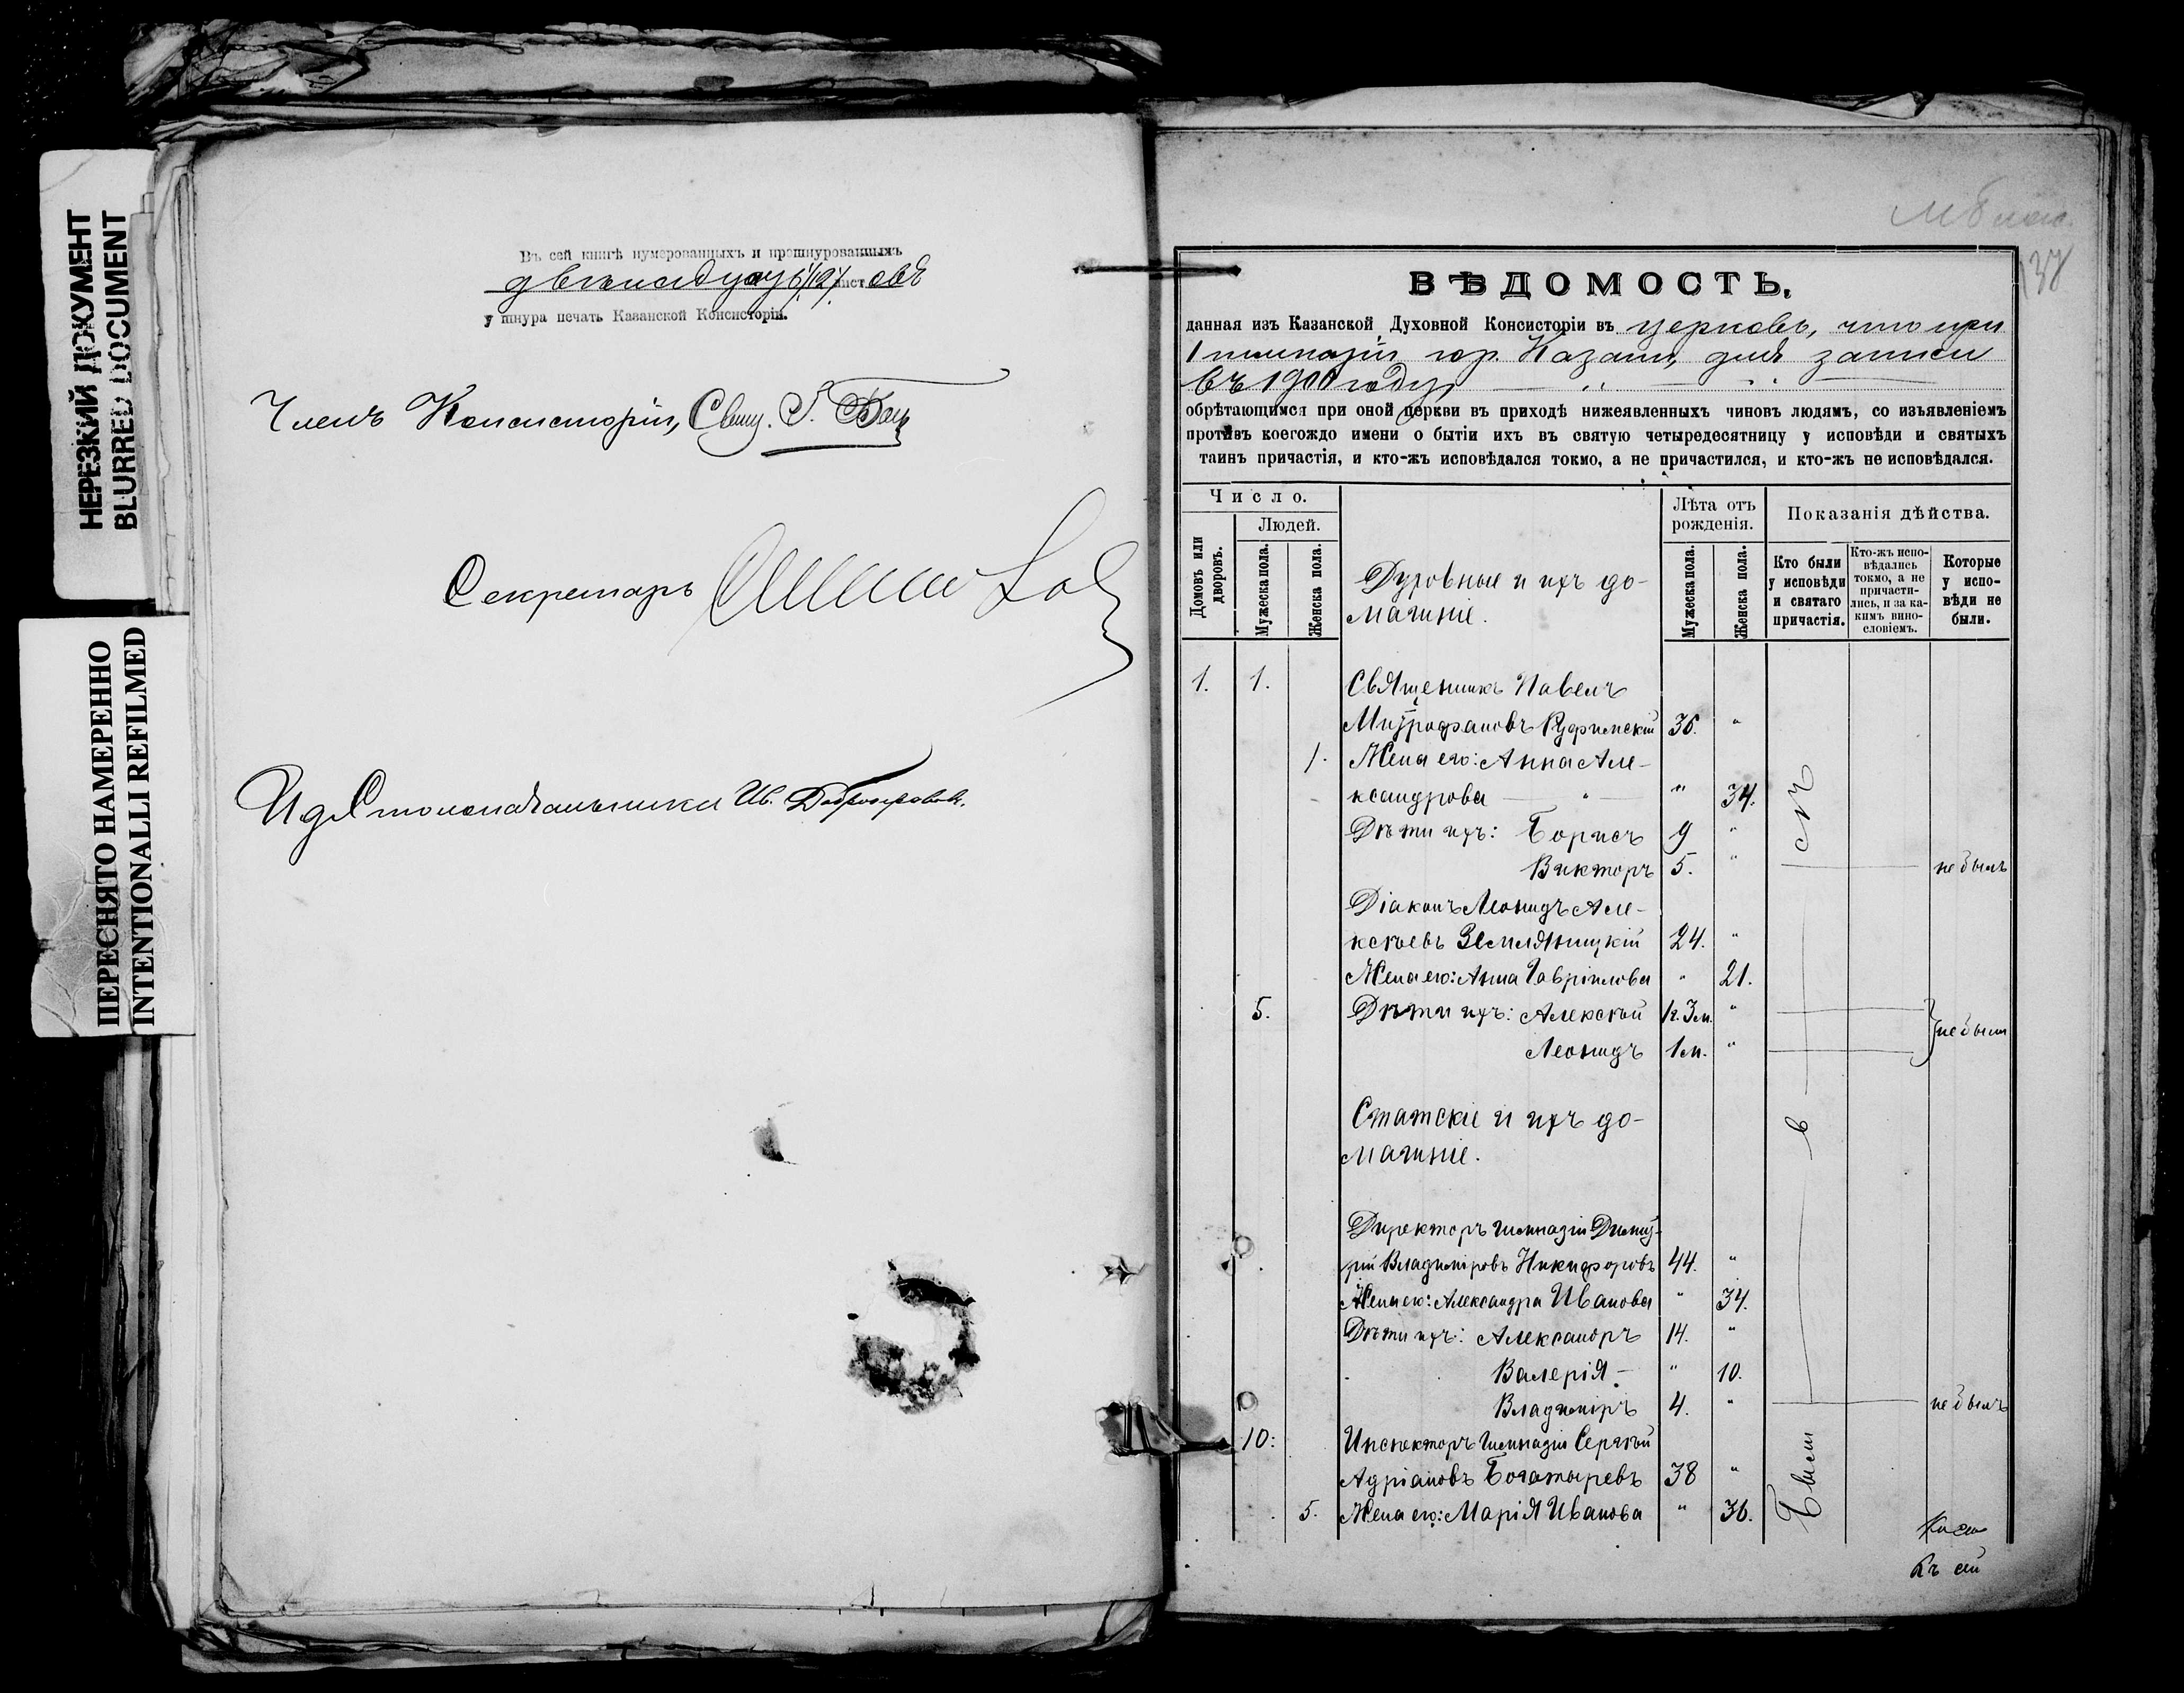 НЕРЕЗКИЙ ДОКУМЕНТ
BLURRED DOCUMENT
ПЕРЕСНЯТО НАМЕРЕННО
INTENTIONALLI REFILMED
Въ сей книгѣ нумерованныхъ и прошнурованныхъ
двѣнадцать /12/ листовъ
у шнура печать Казанской Консисторіи.
Членъ Консисторіи, Свящ.
Секретарь
И д Столоначальника Ив.
138
ВѢДОМОСТЬ,
данная изъ Казанской Духовной Консисторіи въ церковь, что при
1 гимназіи гор. Казани, для записи
въ 1900 году,
обрѣтающимся при оной церкви въ приходѣ нижеявленныхъ чиновъ людямъ, со изъявленіемъ
противъ коегождо имени о бытіи ихъ въ святую четыредесятницу у исповѣди и святыхъ
таинъ причастія, и кто-жъ исповѣдался токмо, а не причастился, и кто-жъ не исповѣдался.
Число.
Людей.
Домовъ или дворовъ.
Мужеска пола.
Женска пола.
Духовные и ихъ до-
машніе.
Лѣта отъ рожденія.
Мужеска пола.
Женска пола.
Показанія дѣйства.
Кто были у исповѣди и святаго причастія.
Кто-жъ испо-вѣдались токмо, а не причасти-лись, и за ка-кимъ вино-словіемъ.
Которые у испо-вѣди не были.
1. 1. Священникъ Павелъ
Митрофановъ Руфимскій 36. "
1. Жена его: Анна Але-
ксандрова — " — " 34.
Дѣти ихъ: Борисъ 9 "
Викторъ 5. " не былъ
Діаконъ Леонидъ Але-
ксѣевъ Земляницкій 24. "
Жена его: Анна Гавріилова " 21.
5. Дѣти ихъ: Алексѣй 1г. 3м. "
Леонидъ 1м. " не были
Статскіе и ихъ до-
машніе.
Директоръ гимназіи Димит-
рій Владиміровъ Никифоровъ 44. "
Жена его: Александра Иванова " 34.
Дѣти ихъ: Александръ 14. "
Валерія — " 10.
Владиміръ 4. " не былъ
10: Инспекторъ гимназіи Сергѣй
Адріановъ Богатыревъ 38 "
5. Жена его: Марія Иванова " 36.
Были
въ
Къ сей